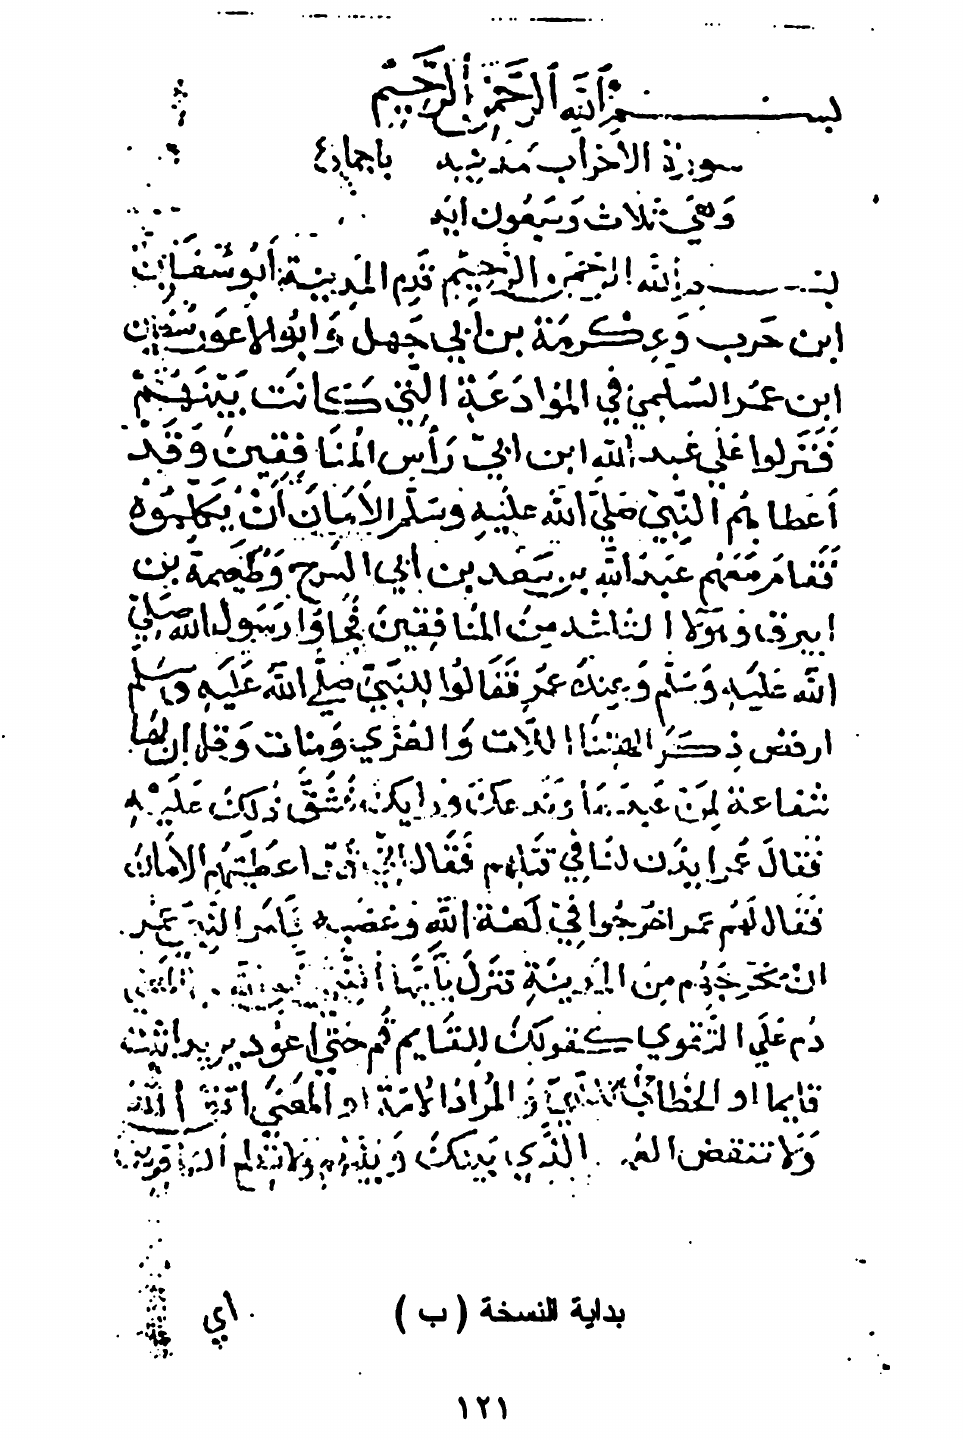 بسم الله الرحمن الرحيم
سورة الاحزاب مدنيه باجماع
وهي ثلاث وسبعون ايه
بسم الله الرحمن الرحيم قدم المدينة أبو سفيان
ابن حرب وعكرمة بن أبي جهل وابو الاعور سفيان
ابن عمر السلمي في الموادعة التي كانت بينهم
فنزلوا علي عبد الله ابن ابي رأس المنافقين وقد
أعطاهم النبي صلي الله عليه وسلم الأمان أن يكلموه
فقام معهم عبد الله بن سعد بن أبي السرح وطعيمة بن
ابيرق وهولا الثلاثه من المنافقين فجاؤا رسول الله صلي
الله عليه وسلم وعنده عمر فقالوا للنبي صلي الله عليه وسلم
ارفض ذكر الهتنا اللات والعزي ومنات وقل ان لها
شفاعة لمن عبدها وندعك وربك فشق ذلك عليه
فقال عمر ايذن لنا في قتلهم فقال اني قد اعطيتهم الامان
فقال لهم عمر اخرجوا في لعنة الله وغضبه فامر النبي عمر
ان يخرجهم من المدينة فنزل يأيها النبي اتق الله المعني
دم علي التقوي كقولك للقايم قم حتي اعود يريد اثبت
قايما او الخطاب للنبي والمراد الامة او المعني اتق الله
ولا تنقض العهد الذي بينك وبينهم ولا تطع الكافرين
اي
بداية النسخة (ب)
١٢١